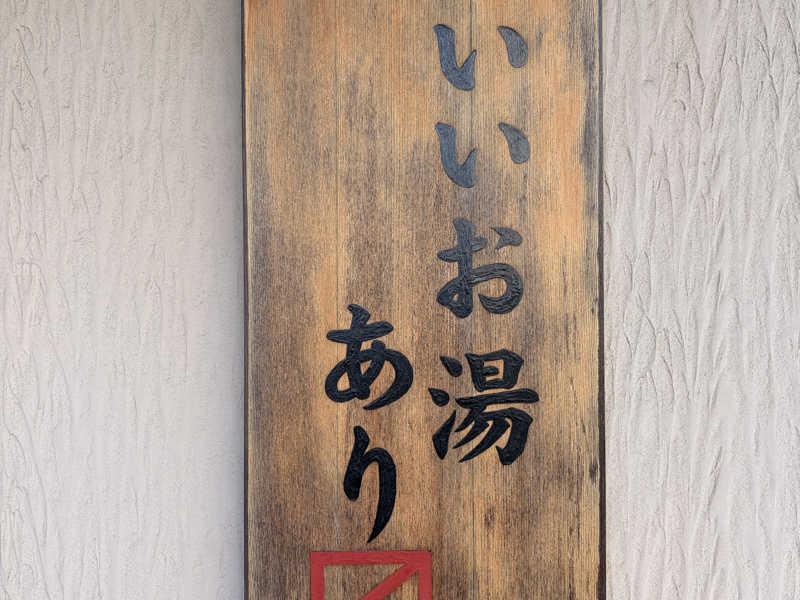 いいお湯
あり